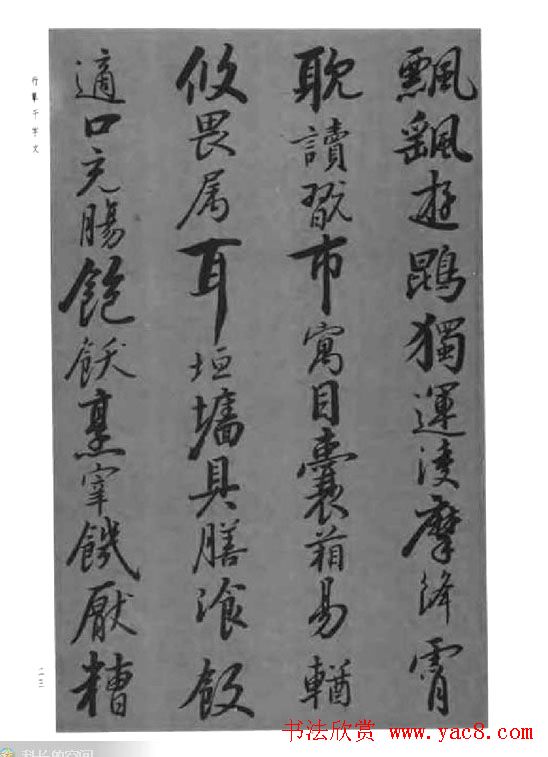 飄颻游鵾獨運淩摩絳霄
耽讀翫市寓目囊葙易輶
攸畏属耳垣墻具膳飡飯
適口充膓飽飫烹宰饑厭糟
行草千字文
二三
书法欣赏 www.yac8.com
科长的空间